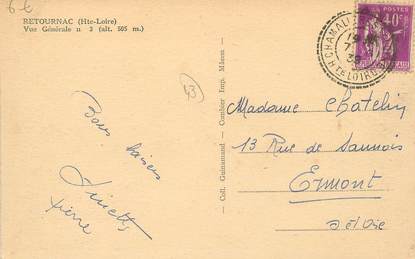 6€
RETOURNAC (Hte-Loire)
Vue Générale n 3 (alt. 505 m.)
43
Bons baisers
Ginette
Pierre
Coll. Guinamand — Combier Imp. Mâcon
POSTES
40c
CHAMALI
Hte LOIRE
Madame Chatelin
13 Rue de Sannois
Ermont
S et Oise